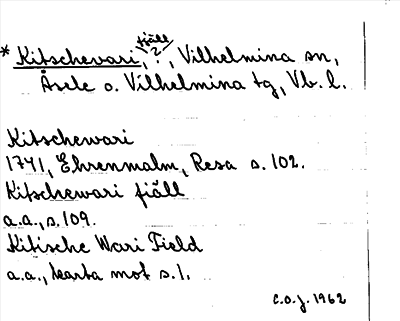 fjäll
* Kitschevari, ?, Vilhelmina sn,
Åsele o. Vilhelmina tg, Vb. l.
Kitschewari
1741, Ehrenmalm, Resa s. 102.
Kitschewari fiäll
a.a., s. 109.
Kitische Wari Field
a.a., karta mot s. 1.
C.O.J. 1962